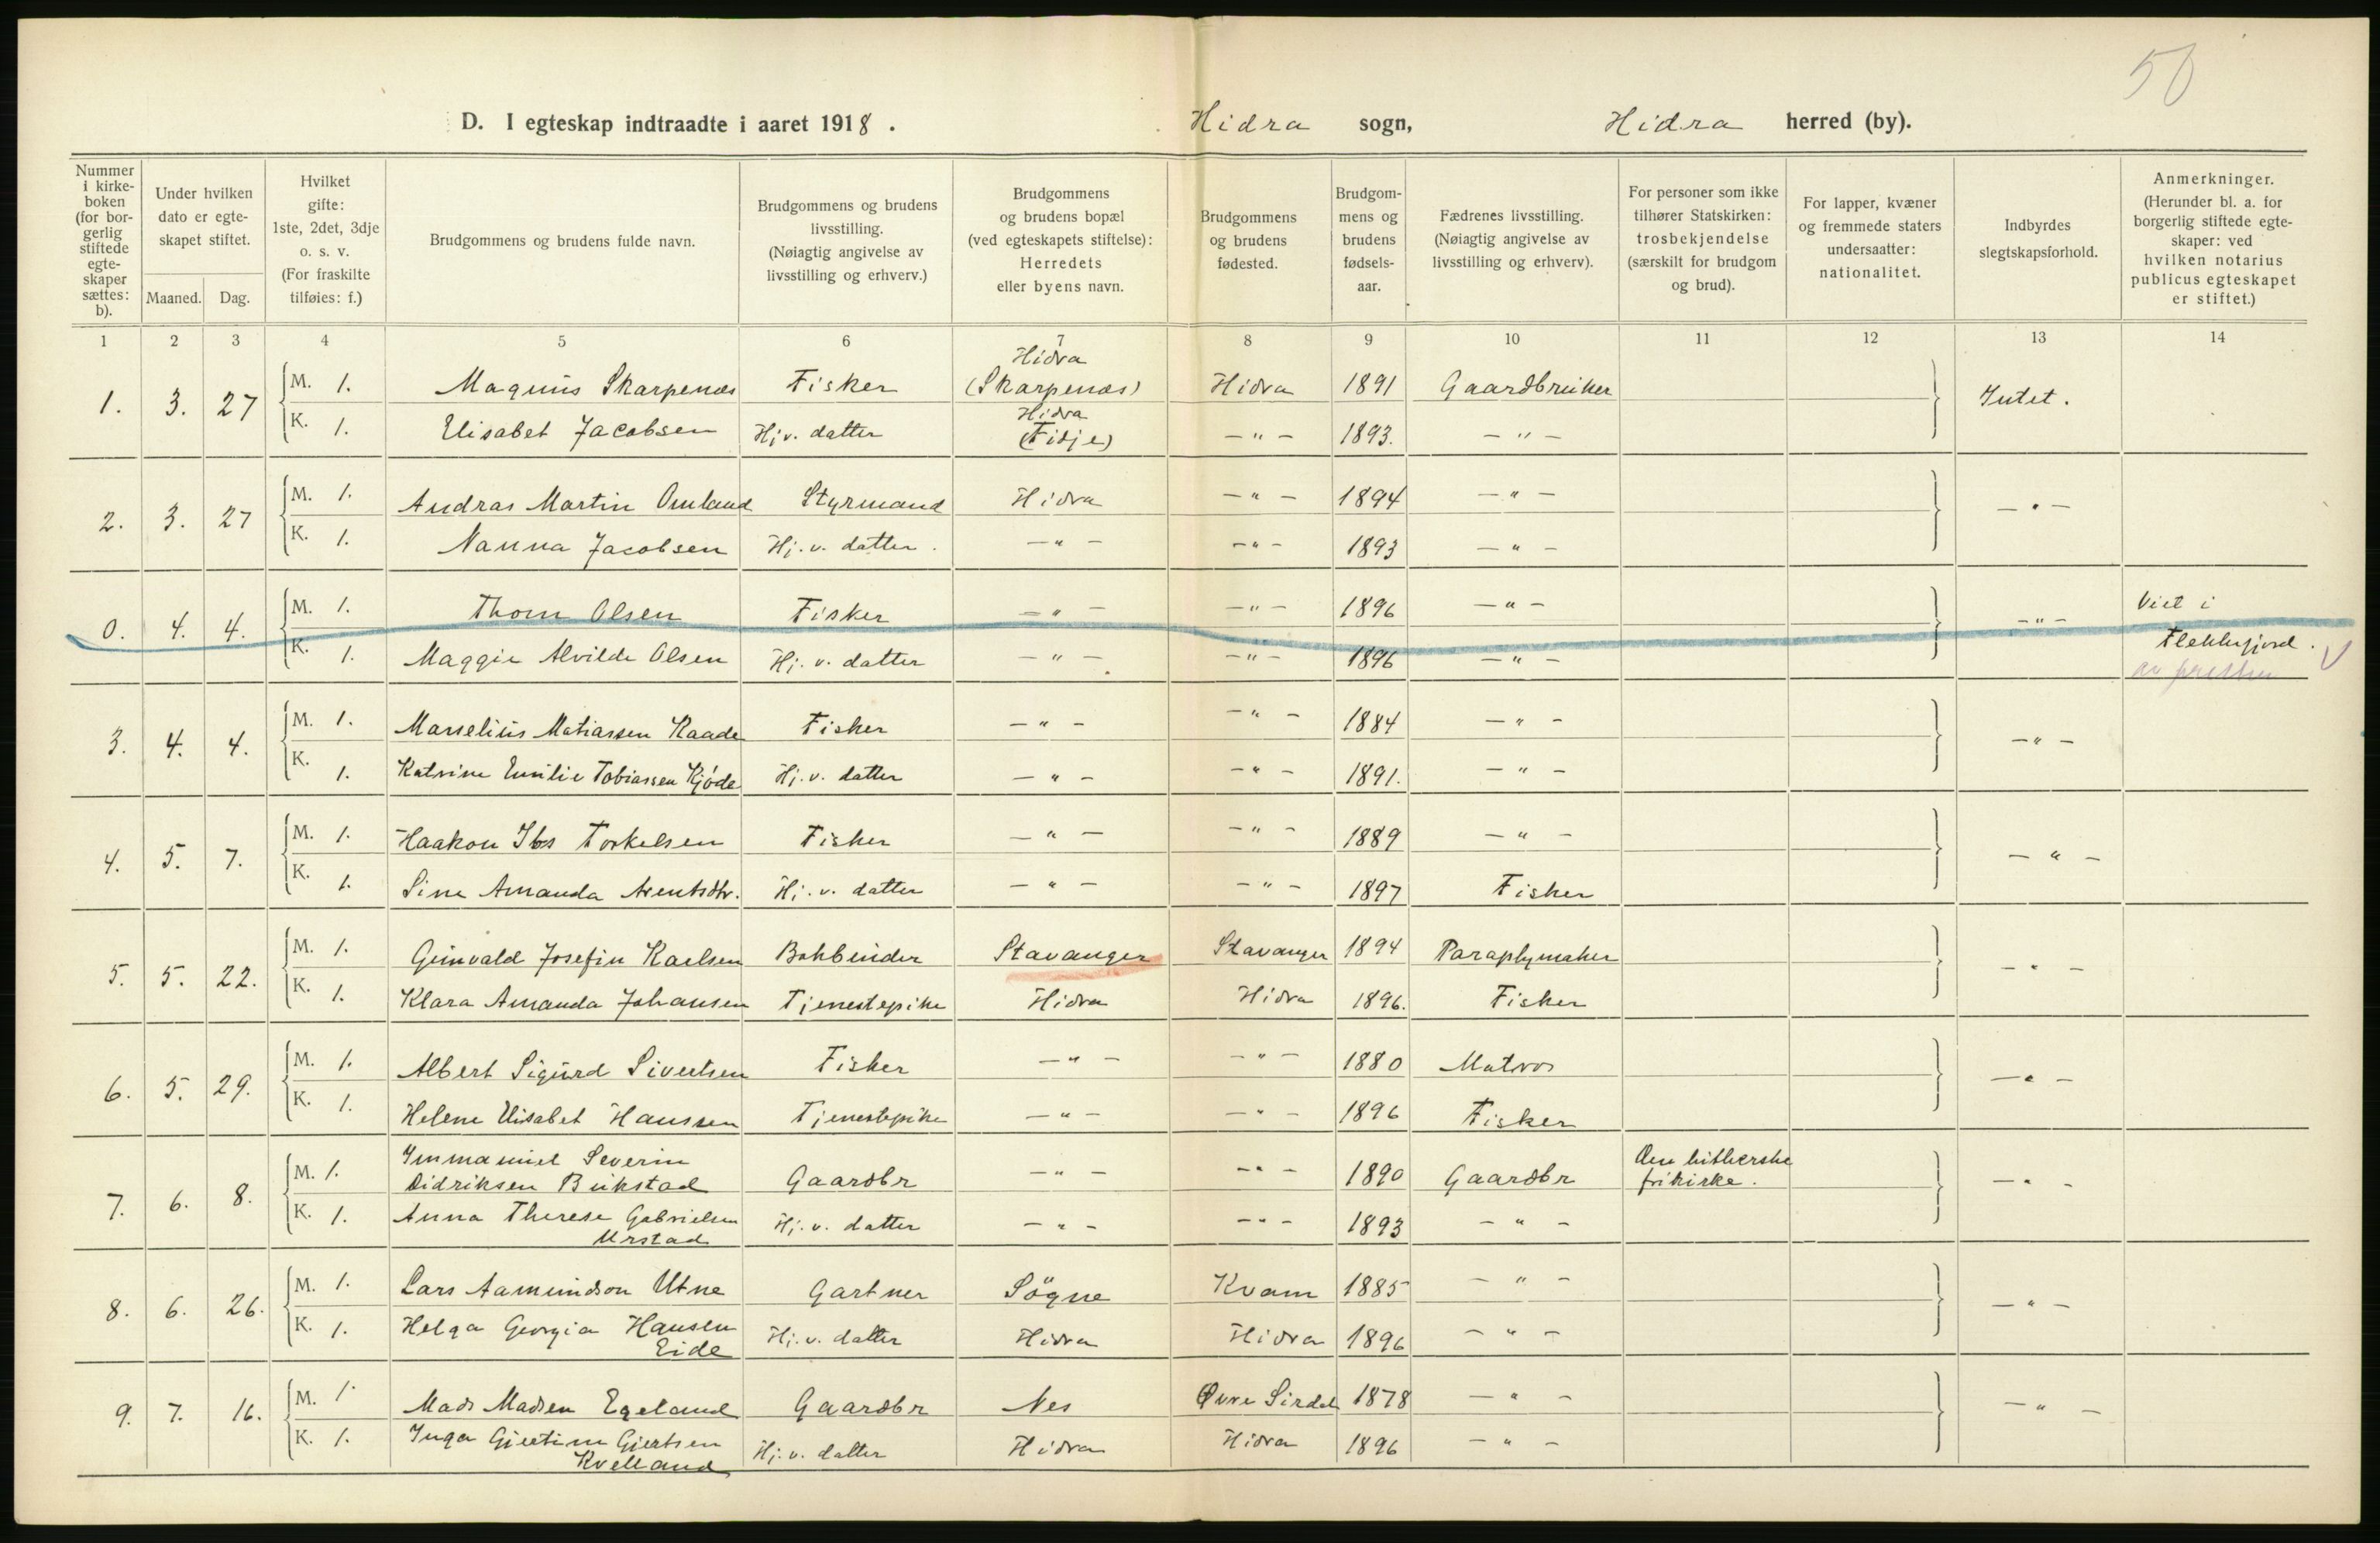 50
D. I egteskap indtraadte i aaret 1918. Hidra sogn, Hidra herred (by).
Nummer i kirke-boken (for bor-gerlig stiftede egte-skaper sættes: b).
Under hvilken dato er egte-skapet stiftet.
Maaned. Dag.
Hvilket gifte: 1ste, 2det, 3dje o. s. v. (For fraskilte tilføies: f.)
Brudgommens og brudens fulde navn.
Brudgommens og brudens livsstilling. (Nøiagtig angivelse av livsstilling og erhverv.)
Brudgommens og brudens bopæl (ved egteskapets stiftelse): Herredets eller byens navn.
Brudgommens og brudens fødested.
Brudgom-mens og brudens fødsels-aar.
Fædrenes livsstilling. (Nøiagtig angivelse av livsstilling og erhverv).
For personer som ikke tilhører Statskirken: trosbekjendelse (særskilt for brudgom og brud).
For lapper, kvæner og fremmede staters undersaatter: nationalitet.
Indbyrdes slegtskapsforhold.
Anmerkninger. (Herunder bl. a. for borgerlig stiftede egte-skaper: ved hvilken notarius publicus egteskapet er stiftet.)
1 2 3 4 5 6 7 8 9 10 11 12 13 14
1. 3. 27 M. 1. Magnus Skarpenæs Fisker Hidra (Skarpenæs) Hidra 1891 Gaardbruker Intet.
K. 1. Elisabet Jacobsen Hj.v. datter Hidra (Fidje) —"— 1893. —"—
2. 3. 27 M. 1. Andras Martin Omland Styrmand Hidra —"— 1894 —"— —"—
K. 1. Nanna Jacobsen Hj. v. datter. —"— —"— 1893 —"—
0. 4. 4. M. 1. Thom Olsen Fisker —"— —"— 1896 —"— —"— Viet i
K. 1. Maggie Alvilde Olsen Hj. v. datter —"— —"— 1896 —"— Flekkefjord. av presten
3. 4. 4. M. 1. Marselius Matiassen Raade Fisker —"— —"— 1884 —"— —"—
K. 1. Katrine Emilie Tobiassen Kjöde Hj. v. datter —"— —"— 1891. —"—
4. 5. 7. M. 1. Haakon Ibs Torkelsen Fisker —"— —"— 1889 —"— —"—
K. 1. Sine Amanda Arentsdtr. Hj. v. datter —"— —"— 1897 Fisker
5. 5. 22. M. 1. Gunvald Josefin Karlsen Bokbinder Stavanger Stavanger 1894 Paraplymaker —"—
K. 1. Klara Amanda Johansen Tjenestepike Hidra Hidra 1896. Fisker
6. 5. 29. M. 1. Albert Sigurd Sivertsen Fisker —"— —"— 1880 Matros —"—
K. 1. Helene Elisabet Hanssen Tjenestepike —"— —"— 1896 Fisker
7. 6. 8. M. 1. Immanuel Severin Didriksen Bukstad Gaardbr —"— —"— 1890 Gaardbr Den lutherske frikirke. —"—
K. 1. Anna Therese Gabrielsen Urstad Hj. v. datter —"— —"— 1893 —"—
8. 6. 26. M. 1. Lars Aamundson Utne Gartner Sögne Kvam 1885 —"— —"—
K. 1. Helga Georgia Hansen Eide Hj. v. datter Hidra Hidra 1896 —"—
9. 7. 16. M. 1. Mads Madsen Egeland Gaardbr Nes Øvre Sirdal 1878 —"— —"—
K. 1. Inga Gjertine Gjertsen Kvelland Hj. v. datter Hidra Hidra 1896 —"—